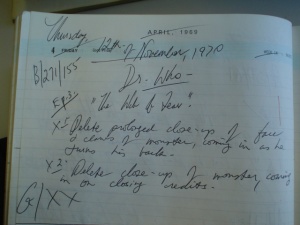 APRIL, 1969
Thursday 12th of November, 1970
B/271/155
Dr. Who
Ep. 3:
"The Web of Fear".
X 1: Delete prolonged close-up of face
& claws of monster, coming in as he
turns his back.
X 2: Delete close-up of monster, coming
in on closing credits.
G/XX